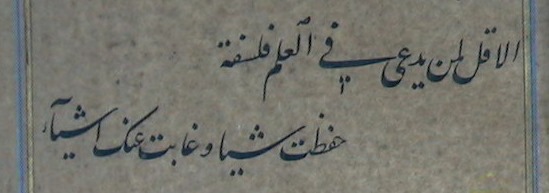 الا قل لمن يدعى فى العلم فلسفة
حفظت شيا و غابت عنك اشيآء